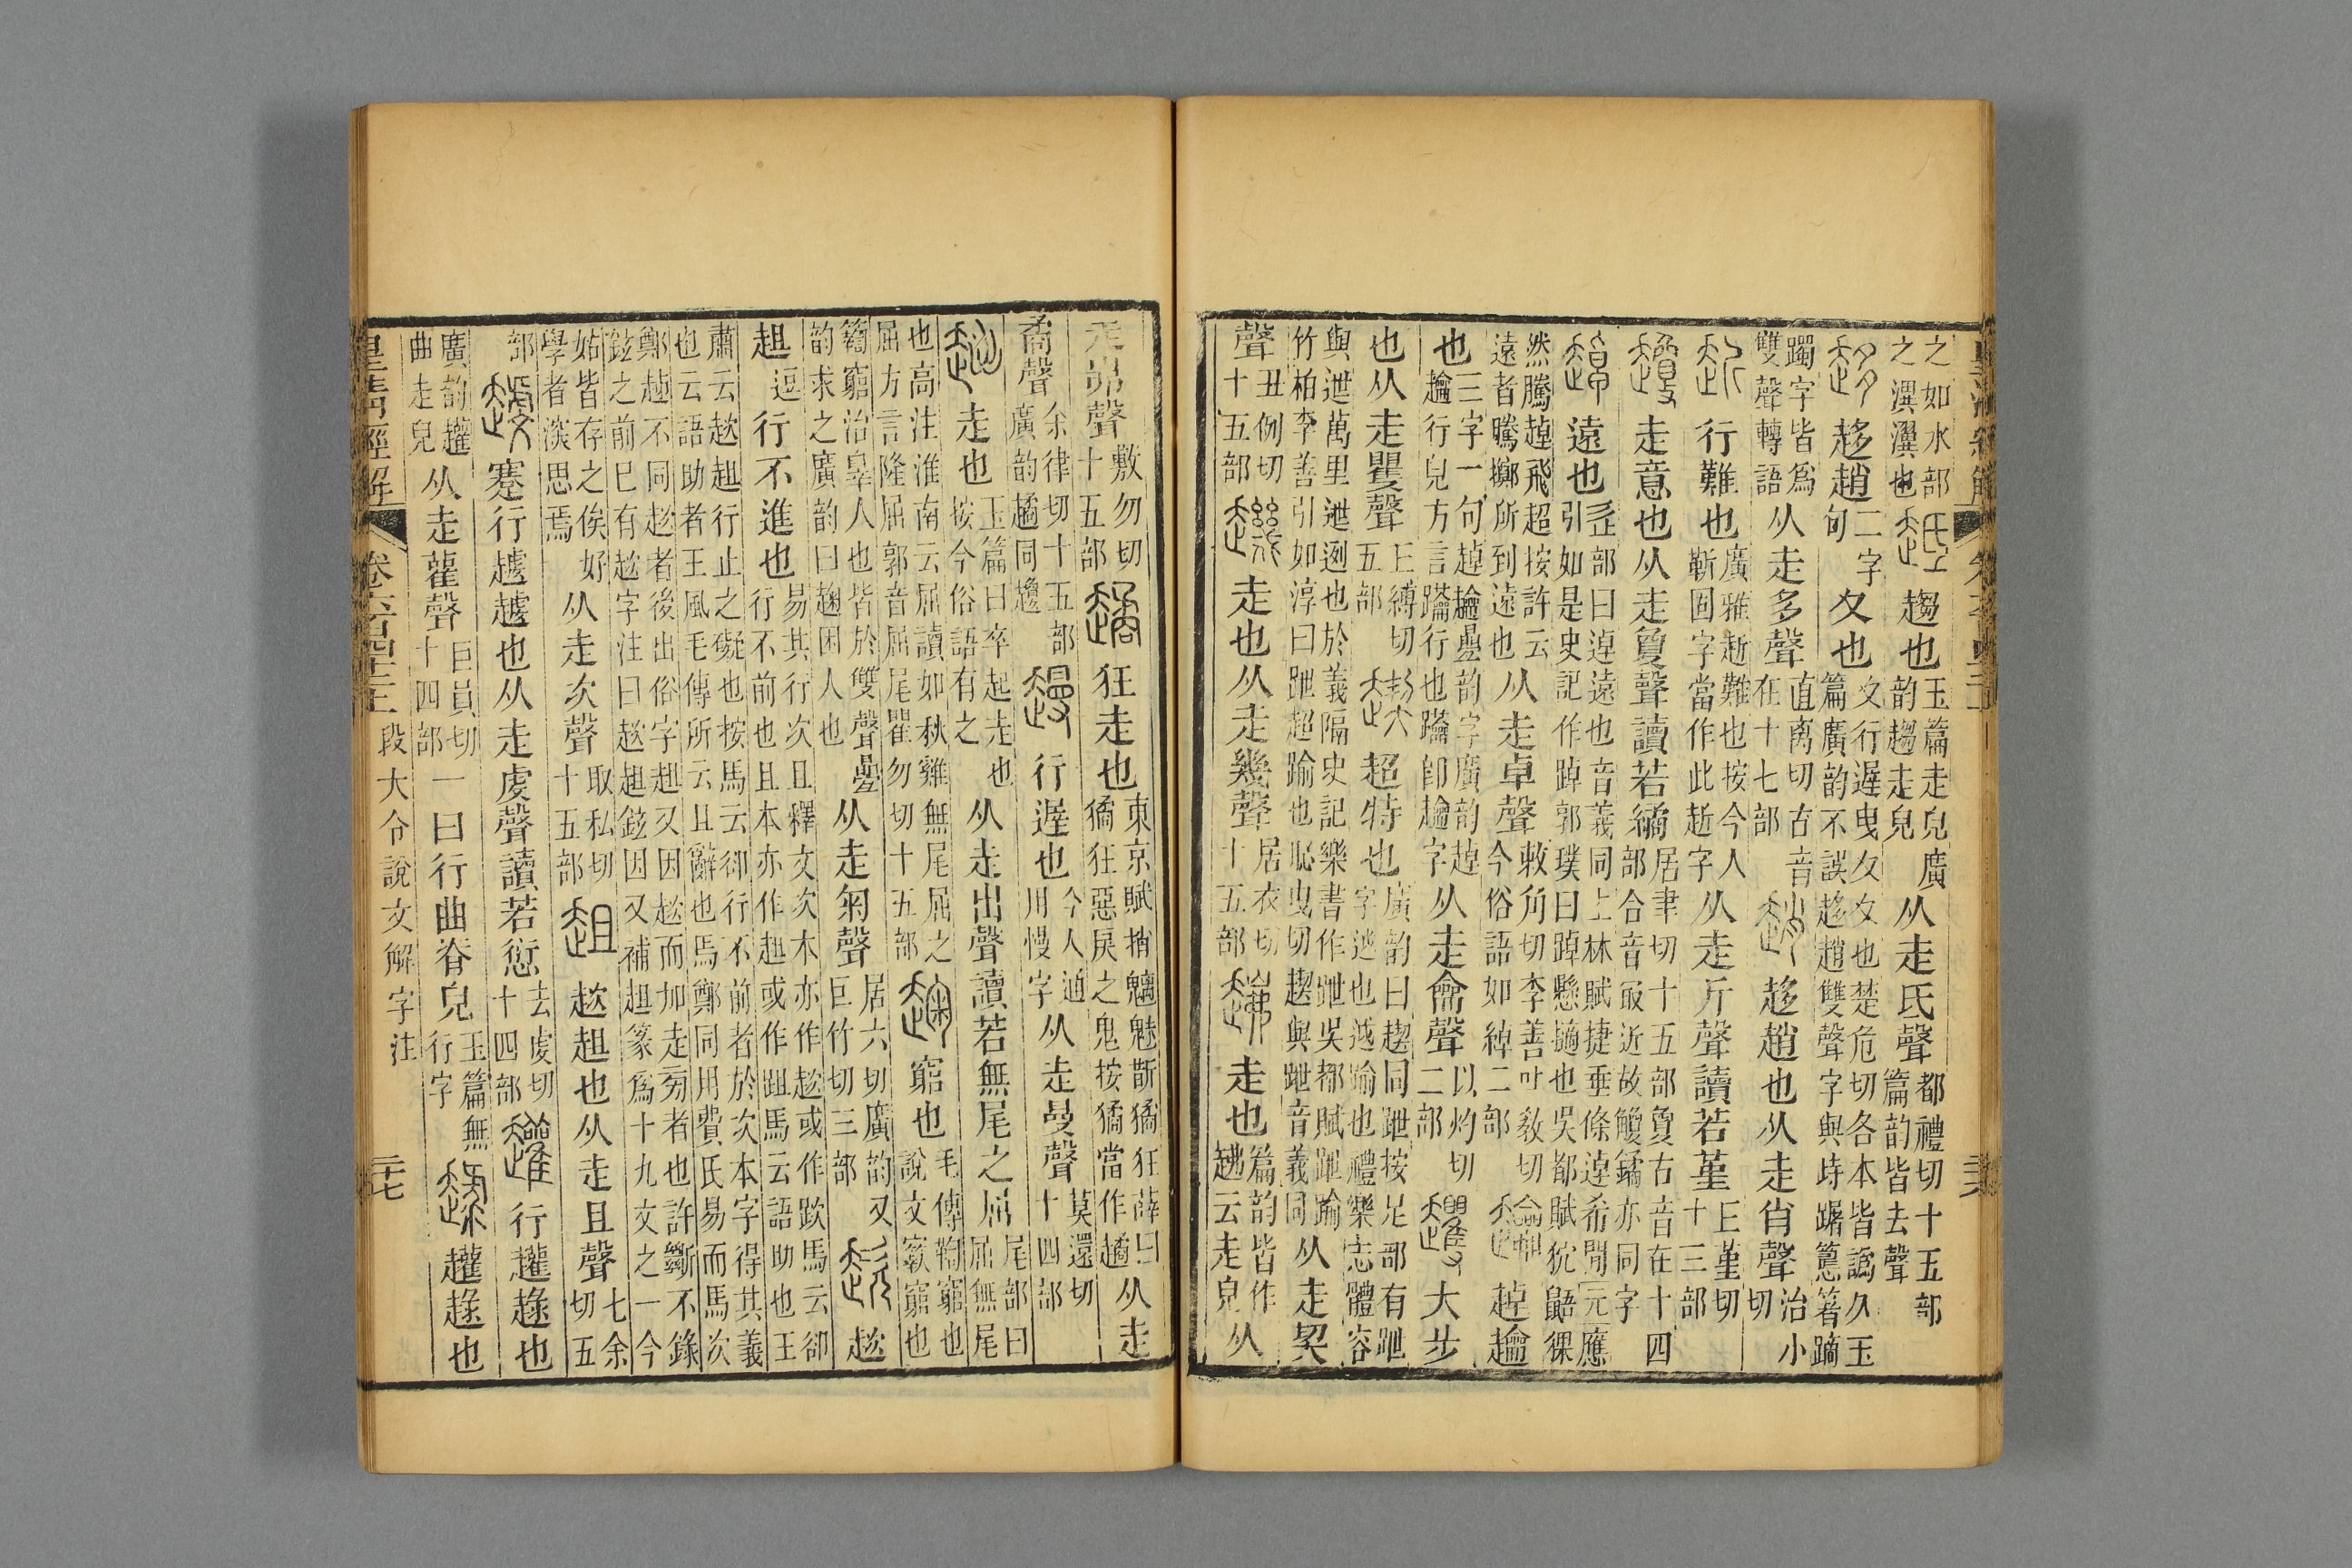 之如水部之潩瀷也趆趨也玉篇走皃廣韵趨走皃从走氏聲都禮切十五部篇韵皆去聲
趍趍趙二字句夊也夊行遲曳夊夊也楚危切各本皆譌久玉篇廣韵不誤趍趙雙聲字與峙踞篦箸蹢
躅字皆爲雙聲轉語从走多聲直离切古音在十七部趙趍趙也从走肖聲治小切
赾行難也廣雅赾難也按今人靳固字當作此赾字从走斤聲讀若堇丘堇切十三部
䞽走意也从走敻聲讀若繘居聿切十五部敻古音在十四部合音最近故觼鐍亦同字
趠遠也辵部曰逴遠也音義同上林賦捷垂條逴希閒元應引如是史記作踔郭璞曰踔懸擿也吳都賦狖鼯猓
然騰趠飛超按許云遠者騰擲所到遠也从走卓聲敕角切李善吐敎切今俗語如綽二部䟑趠䟑
也三字一句趠䟑曡韵字廣韵趠䟑行皃方言䠯行也䠯卽䟑字从走龠聲以灼切二部趯大步
也从走矍聲丘縛切五部䞣超特也廣韵曰䞣同跇按足部有跇字述也述踰也禮樂志體容
與迣萬里迣迾也於義隔史記樂書作跇吳都賦跇踰竹柏李善引如淳曰跇超踰也恥曳切䞣與跇音義同从走契
聲丑例切十五部䟇走也从走幾聲居衣切十五部䟛走也篇韵皆作䞶云走皃从
走岪聲敷勿切十五部趫狂走也東京賦捎魑魅斮獝狂薛曰獝狂惡戾之鬼按獝當作趫从走
矞聲余律切十五部廣韵趫同䟏䟂行遲也今人通用慢字从走曼聲莫還切十四部
䞷走也玉篇曰卒起走也按今俗語有之从走出聲讀若無尾之屈尾部曰屈無尾
也高注淮南云屈讀如秋雞無尾屈之屈方言隆屈郭音屈尾瞿勿切十五部䞻窮也毛傳鞫窮也說文䆷窮也
䉤窮治辠人也皆於雙聲曡韵求之廣韵曰䞻困人也从走匊聲居六切廣韵又巨竹切三部趑趑
趄逗行不進也易其行次且釋文次本亦作趑或作跂馬云卻行不前也且本亦作趄或作跙馬云語助也王
肅云趑趄行止之礙也按馬云卻行不前者於次本字得其義也云語助者王風毛傳所云且辭也馬鄭同用費氏易而馬次
鄭趑不同趑者後出俗字趄又因趑而加走㫄者也許斷不錄鉉之前已有趑字注曰趑趄鉉因又補趄篆爲十九文之一今
姑皆存之俟好學者湥思焉从走次聲取私切十五部趄趑趄也从走且聲七余切五
部䞿蹇行䞿䞿也从走虔聲讀若愆去虔切十四部䠇行䠇趢也
廣韵䠇曲走皃从走雚聲巨員切十四部一曰行曲脊皃玉篇無行字趢䠇趢也
皇淸經解 卷六百四十二 段大令說文解字注 二十七